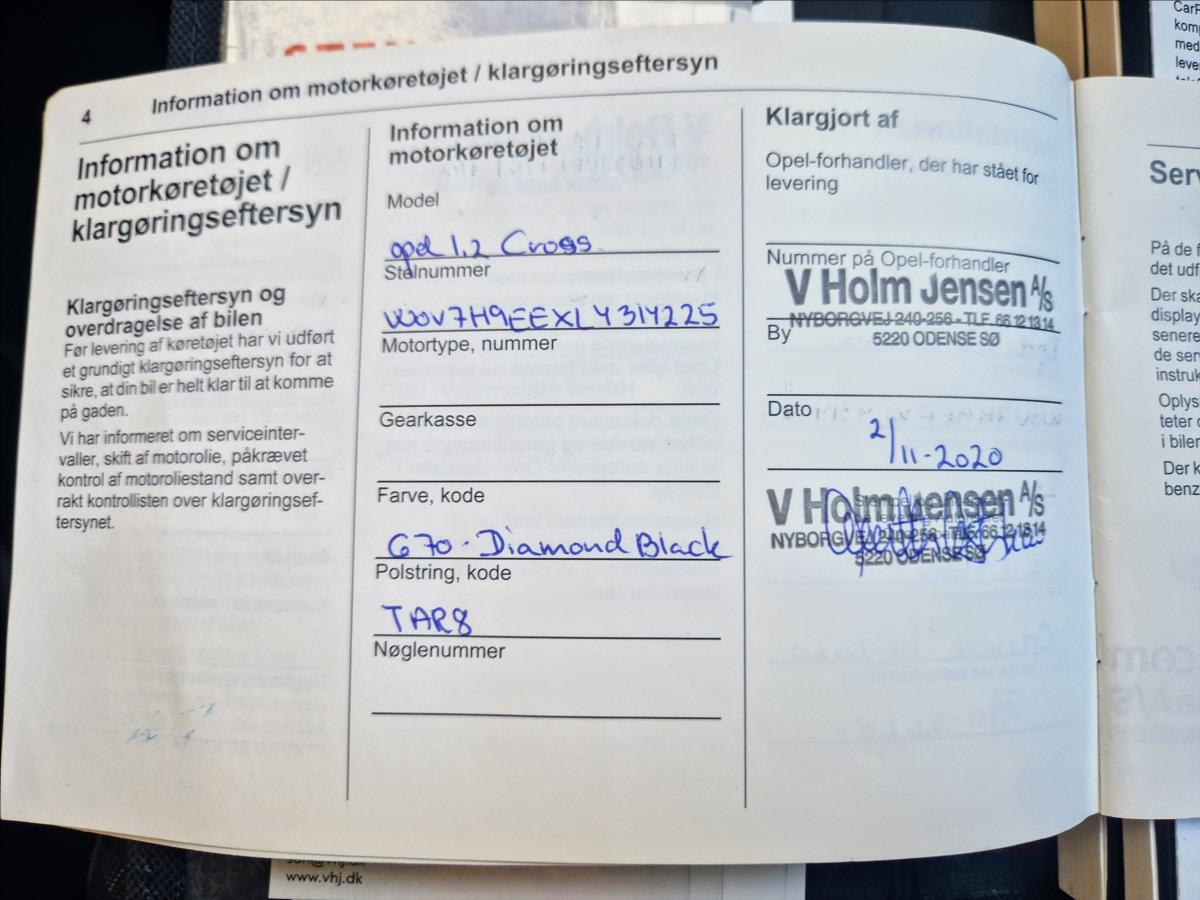 4
Information om motorkøretøjet / klargøringseftersyn
Information om
motorkøretøjet /
klargøringseftersyn
Klargøringseftersyn og
overdragelse af bilen
Før levering af køretøjet har vi udført
et grundigt klargøringseftersyn for at
sikre, at din bil er helt klar til at komme
på gaden.
Vi har informeret om serviceinter-
valler, skift af motorolie, påkrævet
kontrol af motoroliestand samt over-
rakt kontrollisten over klargøringsef-
tersynet.
Information om
motorkøretøjet
Model
opel 1,2 Cross
Stelnummer
W0V7H9EEXL4314225
Motortype, nummer
Gearkasse
Farve, kode
G70 - Diamond Black
Polstring, kode
TAR8
Nøglenummer
Klargjort af
Opel-forhandler, der har stået for
levering
Nummer på Opel-forhandler
V Holm Jensen A/S
NYBORGVEJ 240-256 - TLF. 66 12 13 14
5220 ODENSE SØ
By
Dato
2/11-2020
V Holm Jensen A/S
NYBORGVEJ 240-256 - TLF. 66 12 13 14
5220 ODENSE SØ
www.vhj.dk
CarP
kom
med
leve
Serv
På de f
det udf
Der ska
display
senere
de ser
instruk
Oplys
teter
i biler
Der k
benz